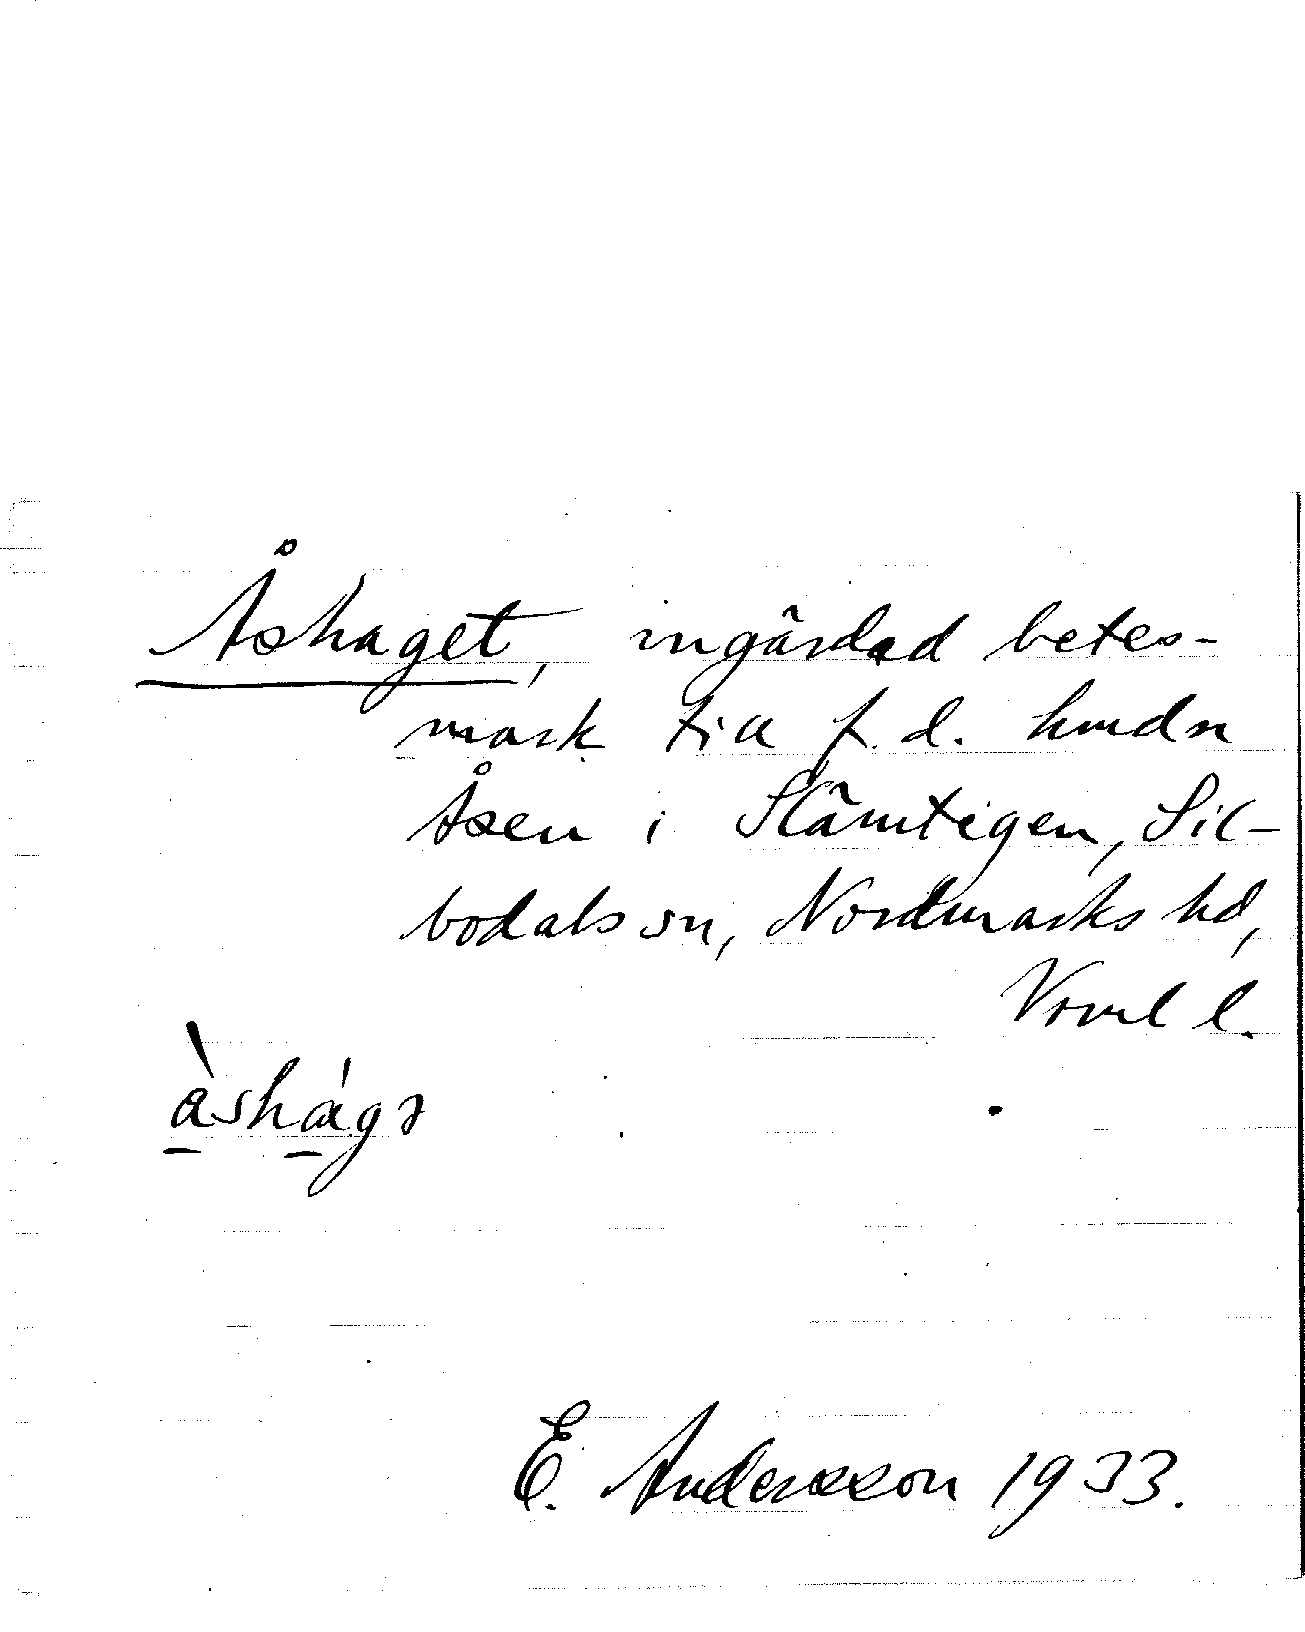 Åshaget, ingärdad betes-
mark till f.d. hmdn
Åsen i Slämtigen, Sil-
bodals sn, Nordmarks hd,
Vrml l.
àshágə
E. Andersson 1933.